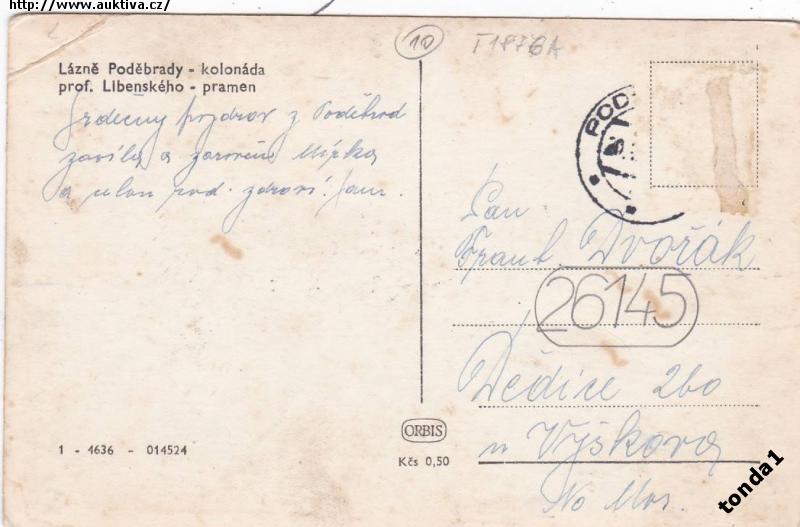 http://www.auktiva.cz/
10
T1876A
Lázně Poděbrady - kolonáda
prof. Libenského - pramen
Srdečný pozdrav z Poděbrad
a
a rod. zdraví Jan.
POD
Pan
Frant. Dvořák
26145
Dědice 260
u Vyškova
Na Mor.
ORBIS
Kčs 0,50
1 - 4636 - 014524
tonda1